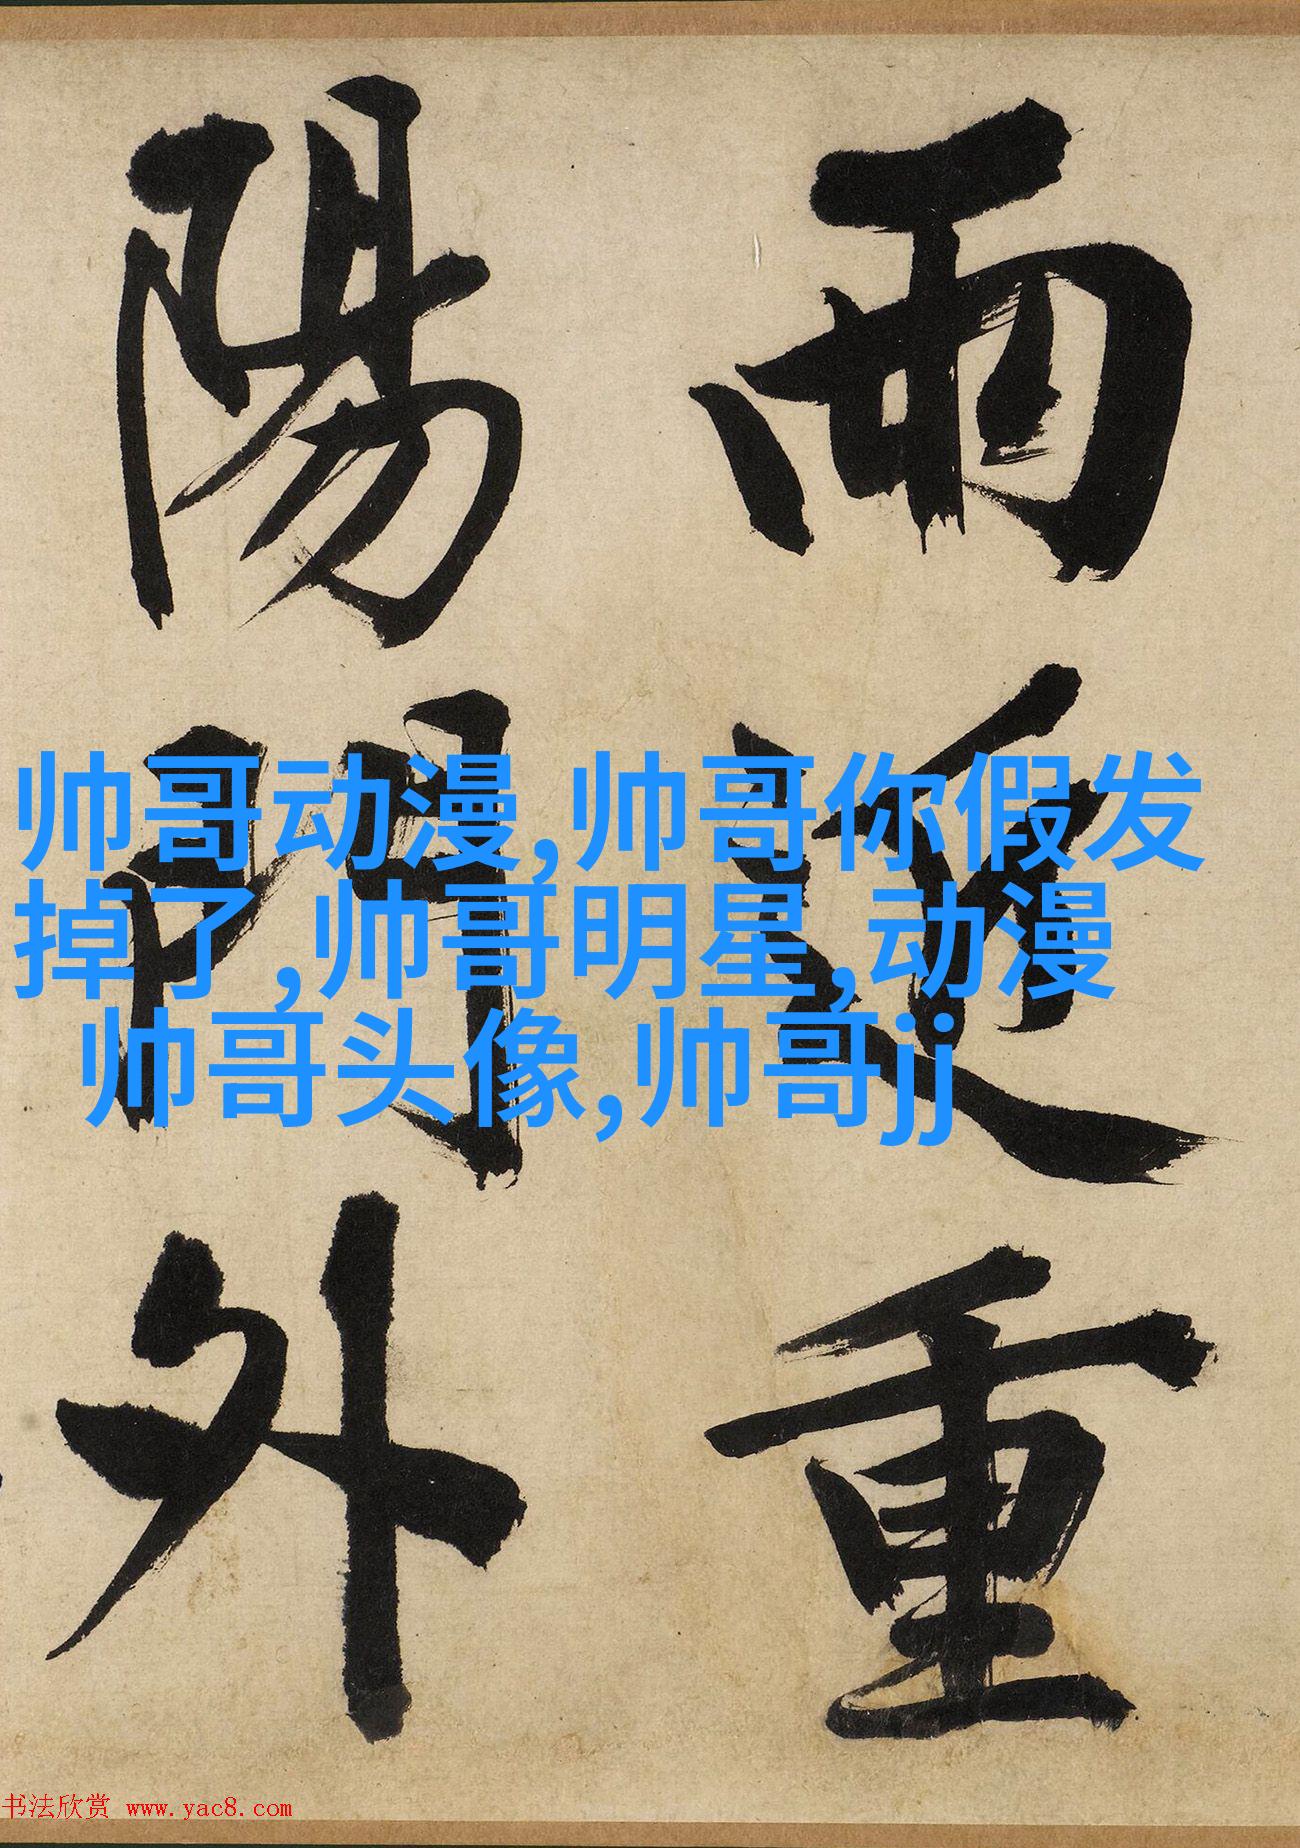 雨更重
陽門外
帅哥动漫,帅哥你假发
掉了,帅哥明星,动漫
帅哥头像,帅哥jj
书法欣赏 www.yac8.com